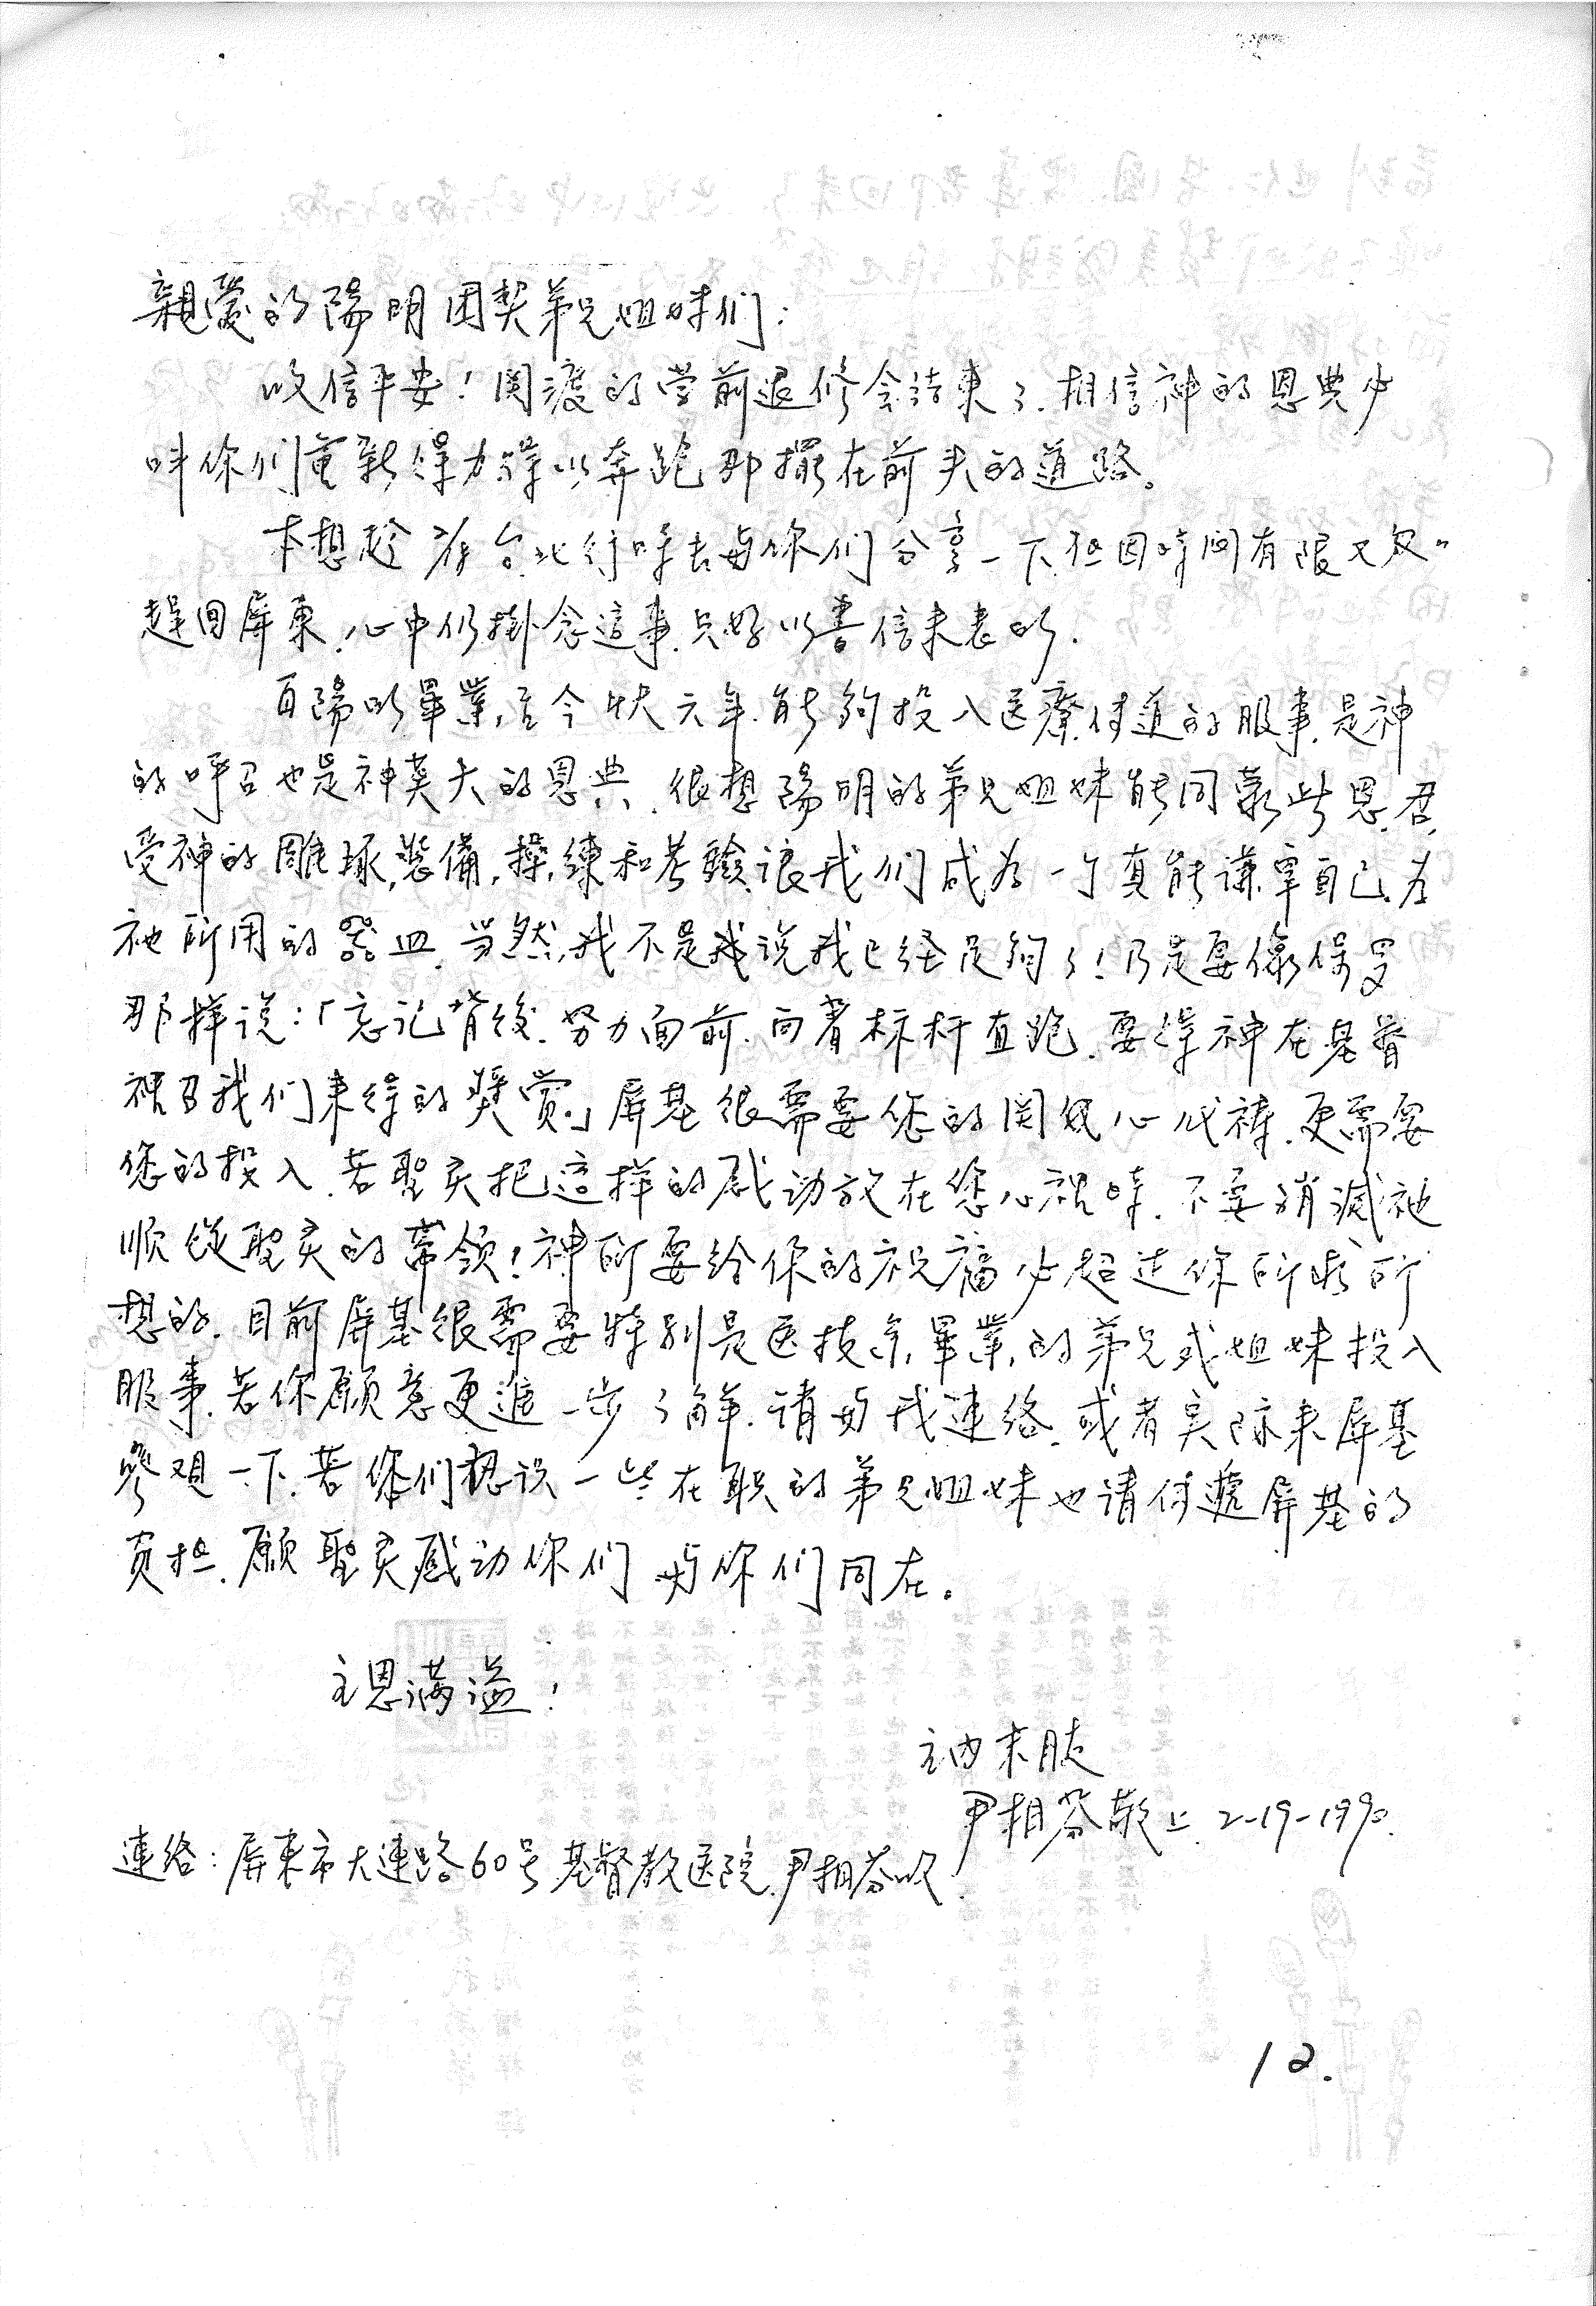 親愛的陽明团契弟兄姐妹们:
收信平安!関渡的営前退修会结束了.相信神的恩典必
叫你们重新得力得以奔跑那擺在前头的道路。
本想趁着台北行時去与你们分享一下,但因時间有限又匆〃
趕回屏東,心中仍掛念這事,只好以書信来表明.
自陽明畢業,至今快六年.能夠投入医療传道的服事,是神
的呼召也是神莫大的恩典.很想陽明的弟兄姐妹能同蒙此恩召,
受神的雕琢,装備,操練和考驗讓我们成為一个真能謙卑自己,為
祂所用的器皿.当然,我不是我说我已经足夠了!乃是要像保罗
那样说:「忘记背後.努力面前.向著标杆直跑.要得神在基督
裡召我们来得的奬赏」屏基很需要您的関心代禱.更需要
您的投入.若聖灵把這样的感动放在您心裡時.不要消滅祂
順從聖灵的带领!神所要给你的祝福必超过你所求所
想的.目前屏基很需要特别是医技系,畢業,的弟兄或姐妹投入
服事.若你願意更進一步了解.請与我連络.或者实际来屏基
參观一下.若你们認识一些在职的弟兄姐妹也请传遞屏基的
負担.願聖灵感动你们 与你们同在。
主恩满溢!
主内末肢
尹相芬敬上 2-19-1990.
連络:屏東市大連路60号基督教医院.尹相芬收
12.